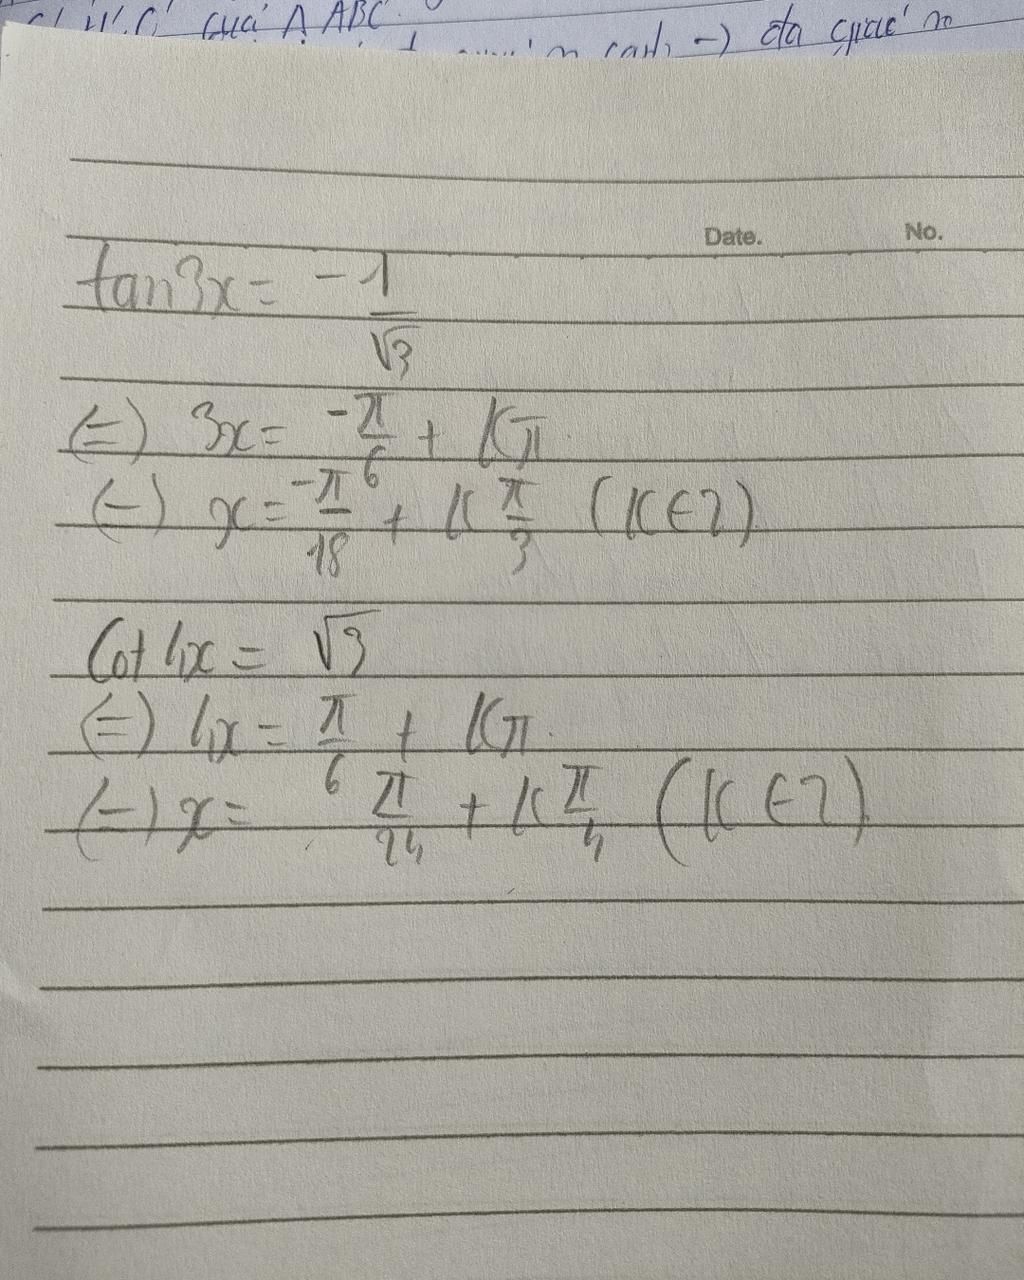 cuả Δ ABC
cạnh → đa giác n
Date. No.
tan3x = -1/√3
(=) 3x = -π/6 + Kπ
(-) x = -π/18 + K π/3 (K ∈ Z)
Cot 4x = √3
(=) 4x = π/6 + Kπ.
(-) x = π/24 + K π/4 (K ∈ Z)